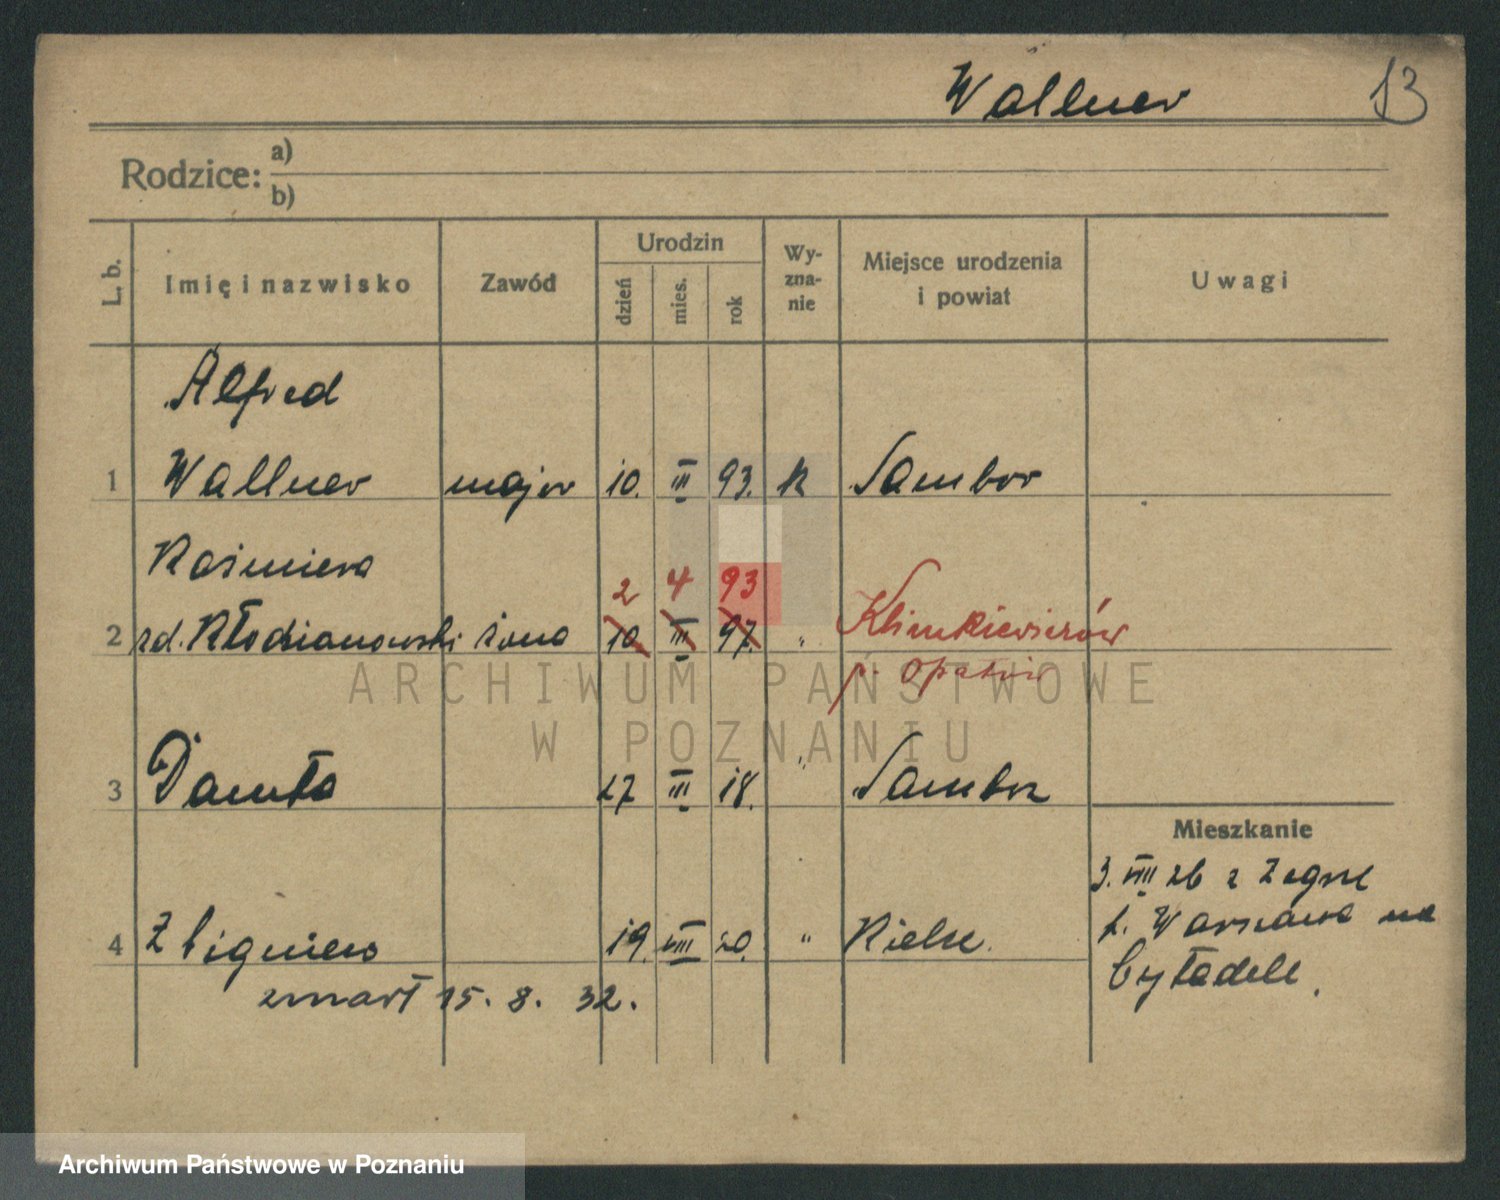 Wallner 13
Rodzice: a)
b)
L. b. Imię i nazwisko Zawód Urodzin dzień mies. rok Wy-zna-nie Miejsce urodzenia i powiat Uwagi
Alfred
1 Wallner major 10. III 93. k Sambor
Kaźmiera 2 4 93
2 zd. Kłodzianowski żona 10 III 97. " Klimkiewiczów
p. Opatów
ARCHIWUM PAŃSTWOWE
W POZNANIU
3 Danuta 27 III 18. " Sambor
Mieszkanie
3. VIII 26 z Zegrze
4 Zbigniew 19. VIII 20. " Kielce.
f. Warszawa na
cytadeli.
zmarł 15. 8. 32.
Archiwum Państwowe w Poznaniu